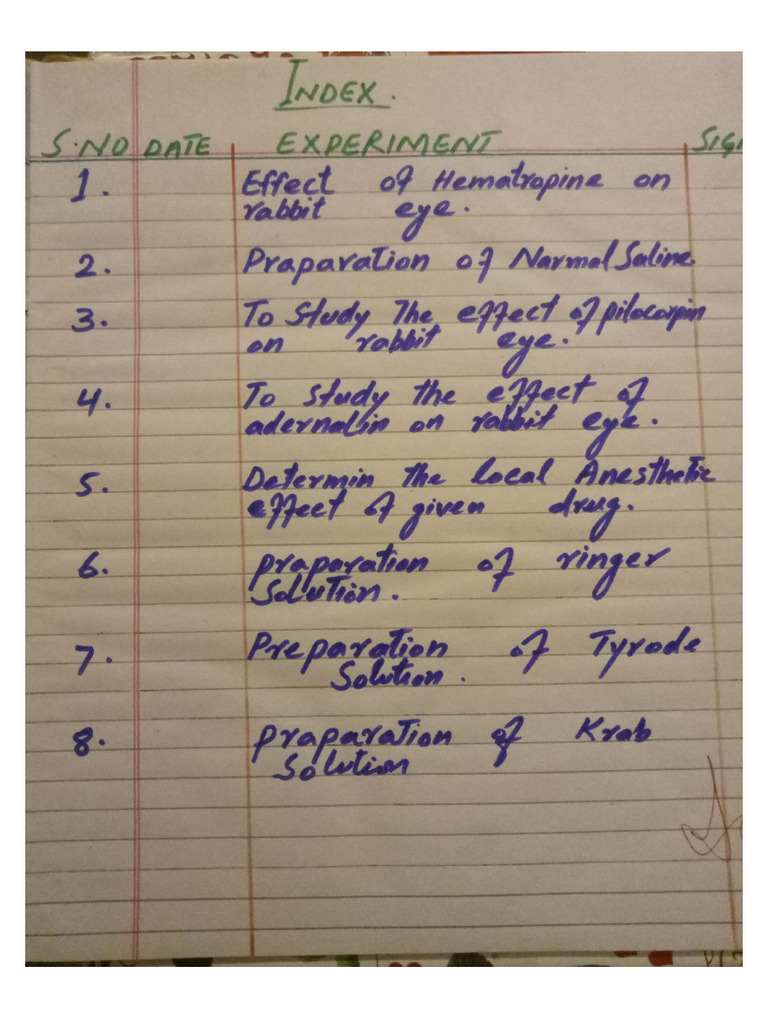 INDEX.
S.NO DATE EXPERIMENT SIG
1. Effect of Hematropine on
rabbit eye.
2. Praparation of Normal Saline
3. To Study The effect of pilocorpin
on rabbit eye.
4. To study the effect of
adernalin on rabbit eye.
5. Determin the local Anesthetic
effect of given drug.
6. praparation of ringer
Solution.
7. Preparation of Tyrode
Solution.
8. praparation of Krab
Solution